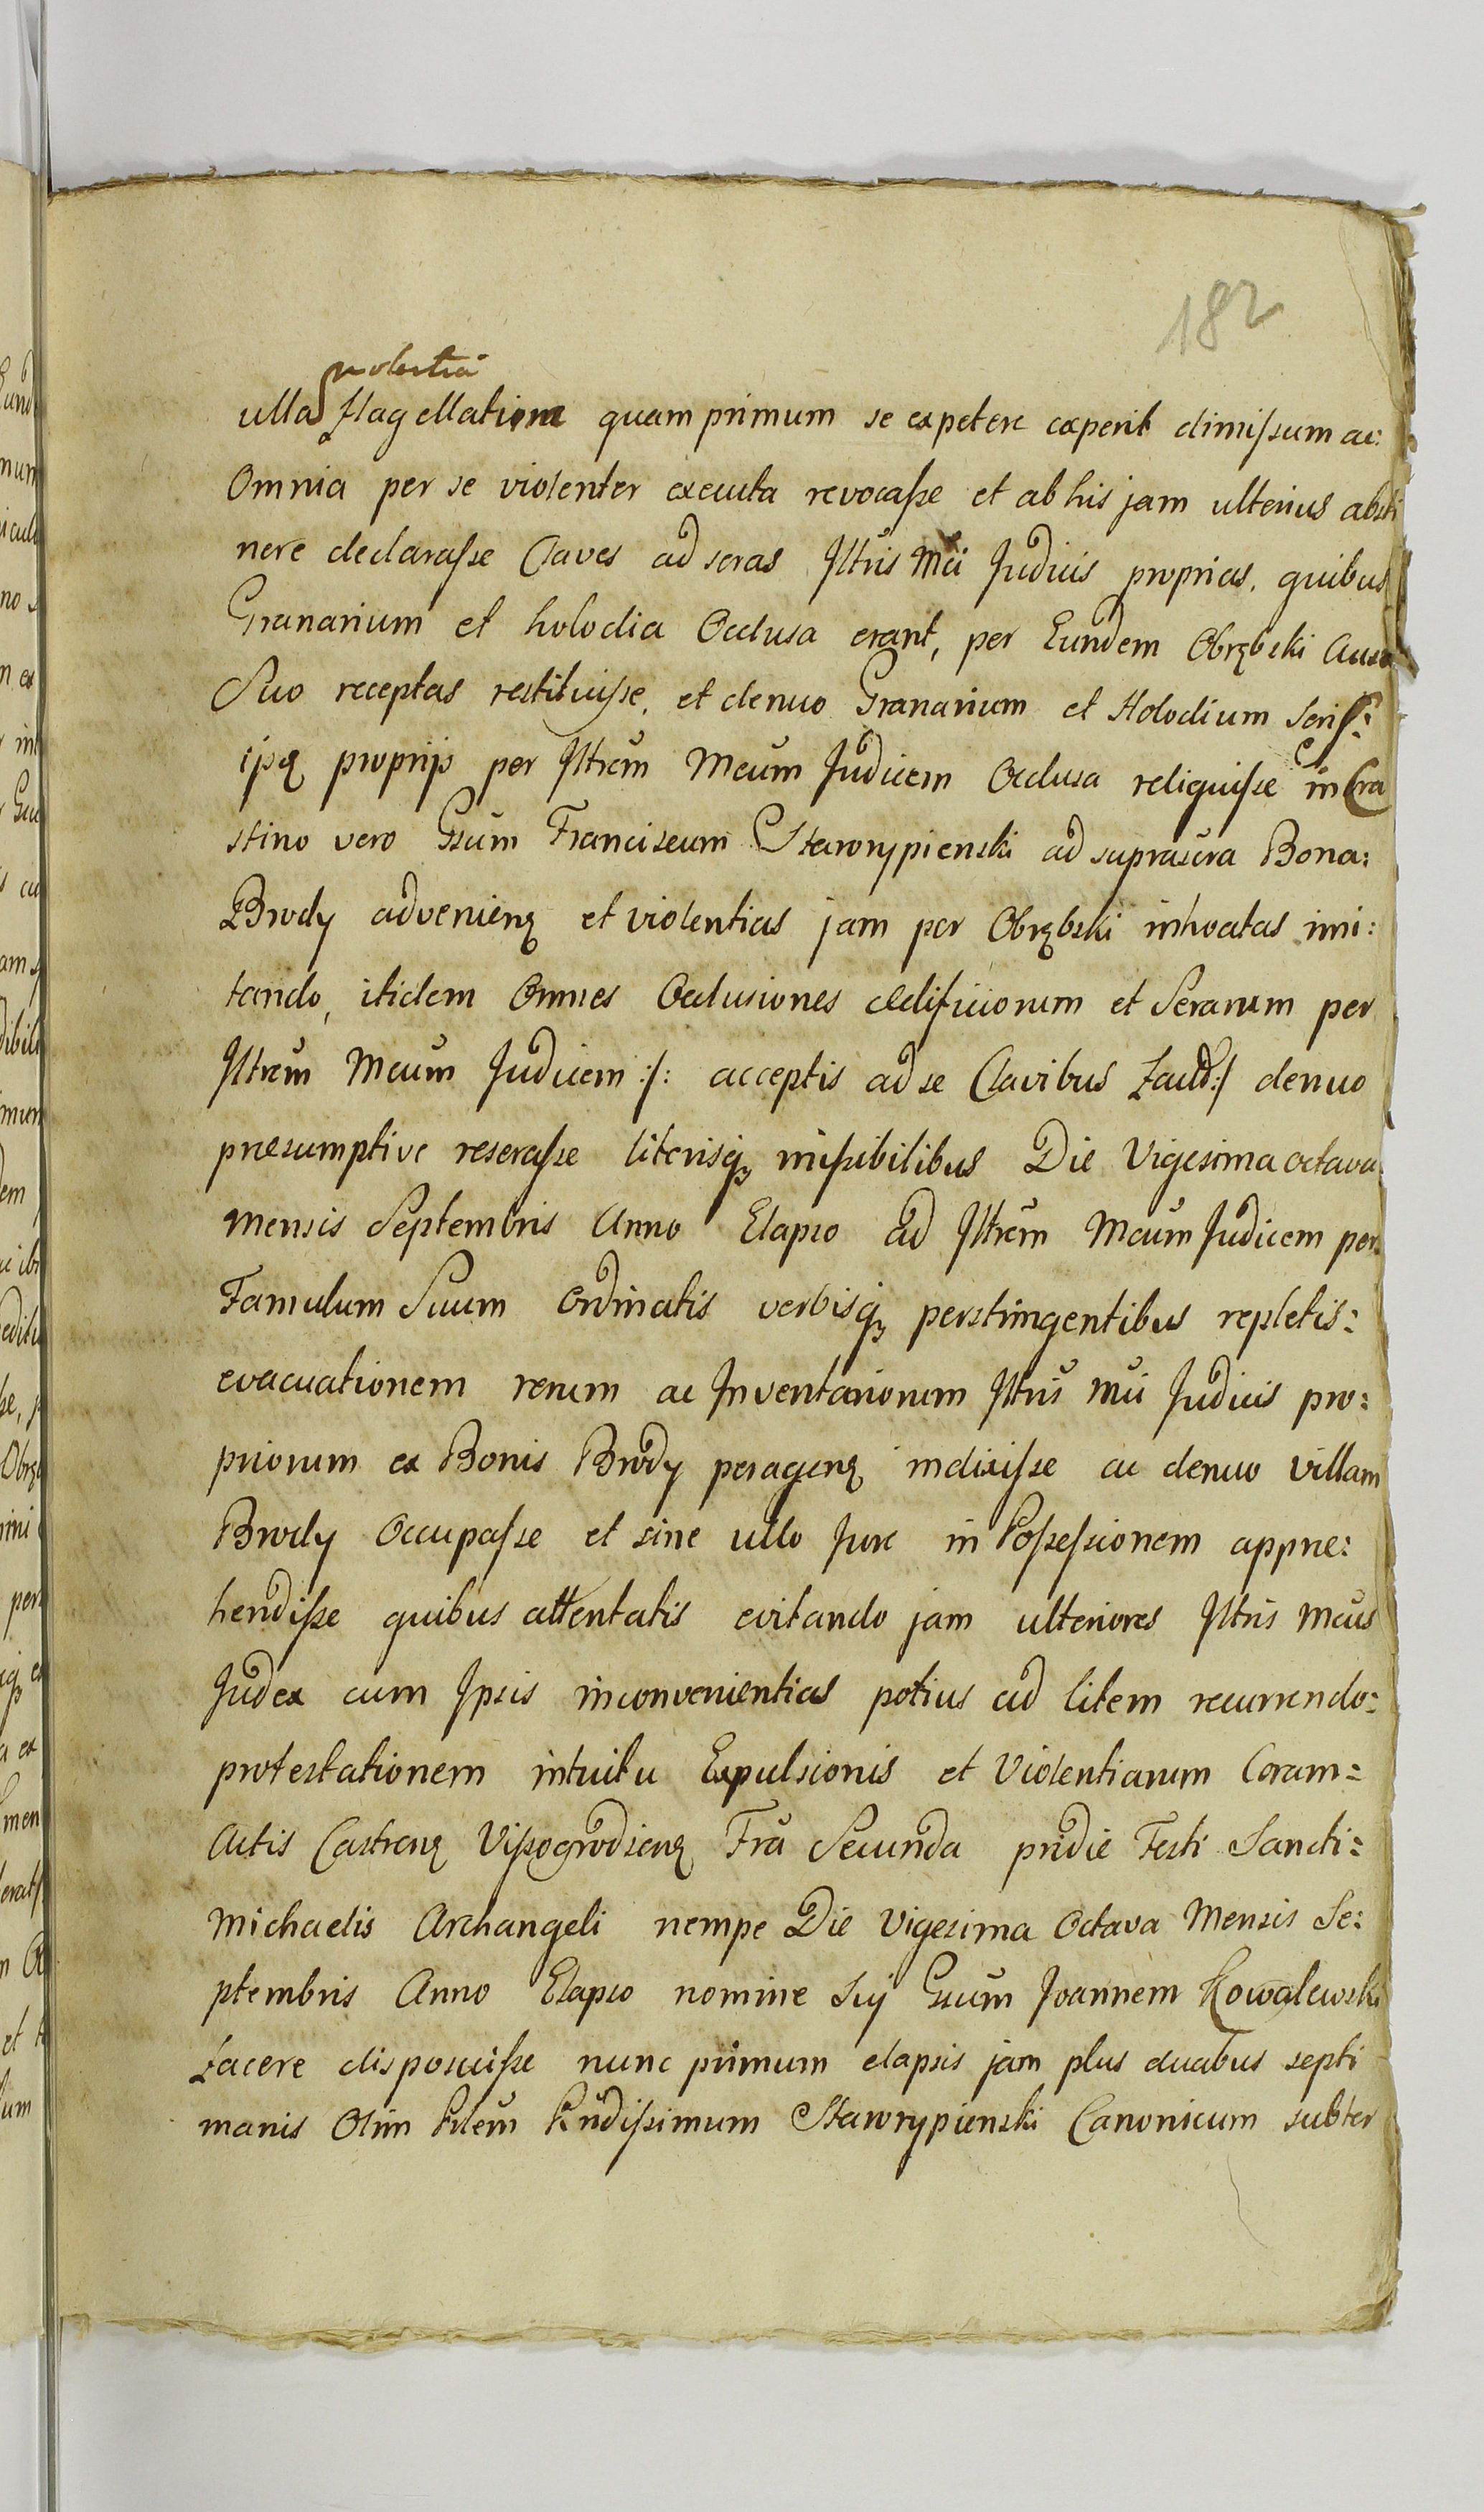 182
molestia
ulla flagellatione quam primum se expetere cœperit dimissum ac:
Omnia per se violenter executa revocasse et ab his jam ulterius absti
nere declarasse Claves ad seras Jllris Mei Judicis proprias, quibus
Granarium et holodia Occlusa erant, per Eundem Obrębski Ausu
Suo receptas restituisse, et denuo Granarium et Holodium Seris:
ipsq propriis per Jllrem Meum Judicem Occlusa reliquisse in Cra
stino vero Gsum Franciscum Starorypienski ad suprascra Bona:
Brody advenienq et violentias jam per Obrębski intvatas imi:
tando, itidem Omnes Occlusiones Ædificiorum et Serarum per
Jllrem Meum Judicem :/: acceptis ad se Clavibus factas:/ denuo
præsumptive reserasse literisq missibilibus Die Vigesima octava
Mensis Septembris Anno Elapso ad Jllrem Meum Judicem per
Famulum Suum Ordinatis verbisq perstringentibus repletis:
evacuationem rerum ac Jnventariorum Jllris Mei Judicis pro:
priorum ex Bonis Brody peragenq indixisse ac denuo villam
Brody Occupasse et sine ullo Jure in Possessionem appre:
hendisse quibus attentatis evitando jam ulteriores Jllris Meus
Judex cum Jpsis inconvenientias potius ad litem recurrendo:
protestationem intuitu Expulsionis et Violentiarum Coram=
Actis Castrenq Vissogrodienq Fria Secunda pridie Festi Sancti:
Michaelis Archangeli nempe Die Vigesima Octava Mensis Se:
ptembris Anno Elapso nomine Sui Gsum Joannem Kowalewski
facere disposuisse nunc primum elapsis jam plus duabus septi
manis Olim Prlem Rndissimum Starorypienski Canonicum subter